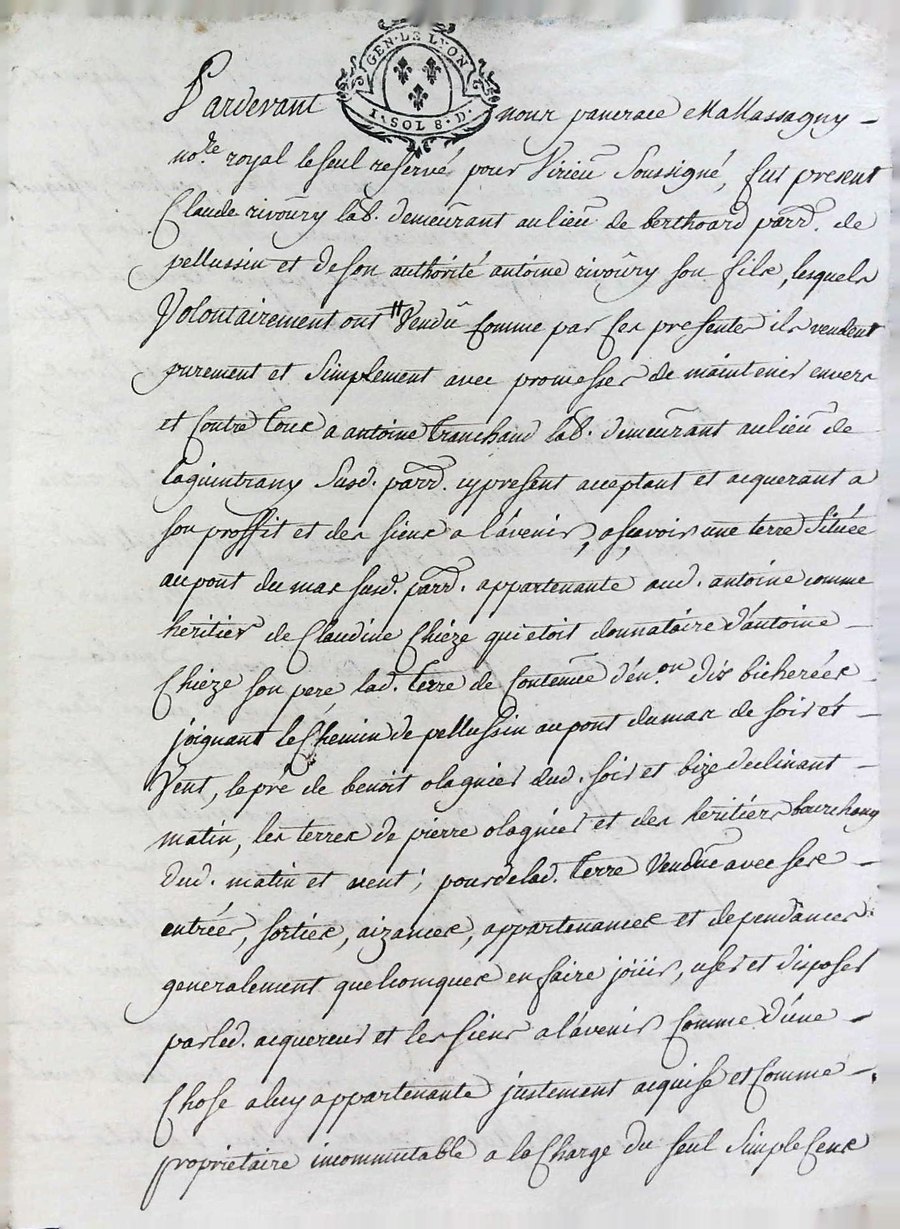 GEN. DE LYON
1. SOL 8. D.
Pardevant nous pancrace Mallassagny -
no.re royal le seul reservé pour Virieu Soussigné, fut present
Claude rivoùry lab. demeurant au lieu de berthoard parr. de
pellussin et de son authorité antoine rivoùry son fils, lesquels
Volontairement ont " Vendu Comme par Ces presentes ils vendent
purement et Simplement avec promesses de maintenir envers
et Contre tous a antoine tranchand lab. demeurant au lieu de
laguintrany Susd. parr. cy present acceptant et acquerant a
son proffit et des siens a l'avenir, a scavoir une terre Située
au pont du mas susd. parr. appartenante aud. antoine comme
heritier de Claudine Chieze qui etoit donnataire d'antoine -
Chieze son pere lad. terre de Contenue d'en.on dix bicherées -
joignant le Chemin de pellussin au pont du mas de soir et -
Vent, le pré de benoit olagnier dud. soir et bize declinant -
matin, les terres de pierre olagnier et des heritiers bourchany
dud. matin et vent; pour de lad. terre Vendue avec ses -
entrées, sorties, aizances, appartenances et dependances
generalement quelconques en faire joüir, user et disposer
par led. acquereur et les siens a l'avenir Comme d'une -
Chose a luy appartenante justement acquise et Comme -
proprietaire incommutable a la Charge du seul Simple Cens